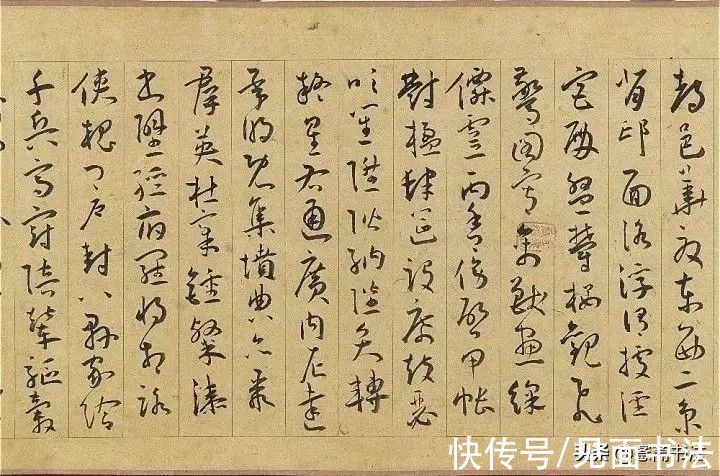 都邑華夏東西二京
背邙面洛浮渭據涇
宮殿盤鬱樓觀飛
驚圖寫禽獸畫綵
僊靈丙舍傍啓甲帳
對楹肆筵設席鼓瑟
吹笙陞階納陛弁轉
疑星右通廣內左達
承明既集墳典亦聚
羣英杜稾鍾隸漆
書壁經府羅將相路
俠槐卿户封八縣家給
千兵高冠陪輦驅轂
快传号/见面书法